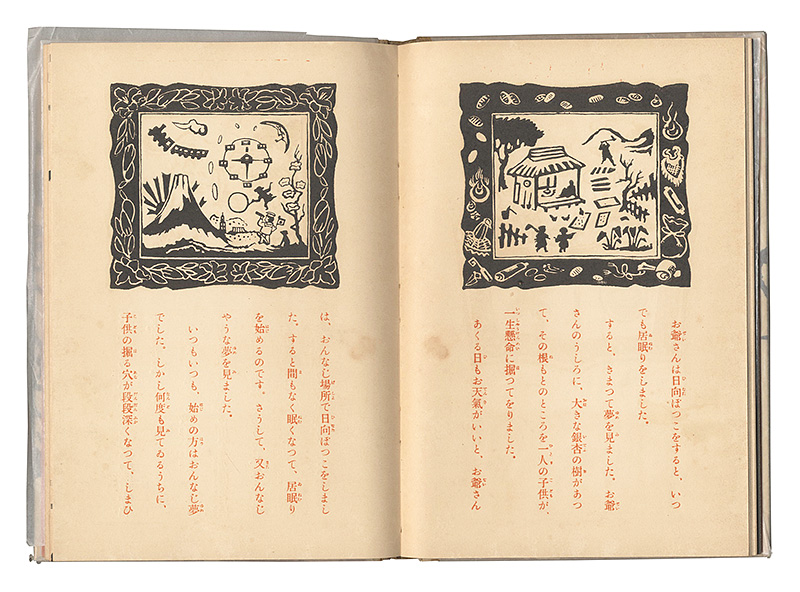 お爺さんは日向ぼつこをすると、いつ
でも居眠りをしました。
すると、きまつて夢を見ました。お爺
さんのうしろに、大きな銀杏の樹があつ
て、その根もとのところを一人の子供が、
一生懸命に掘つてをりました。
あくる日もお天氣がいいと、お爺さん
は、おんなじ場所で日向ぼつこをしまし
た。すると間もなく眠くなつて、居眠り
を始めるのです。さうして、又おんなじ
やうな夢を見ました。
いつもいつも、始めの方はおんなじ夢
でした。しかし何度も見てゐるうちに、
子供の掘る穴が段段深くなつて、しまひ